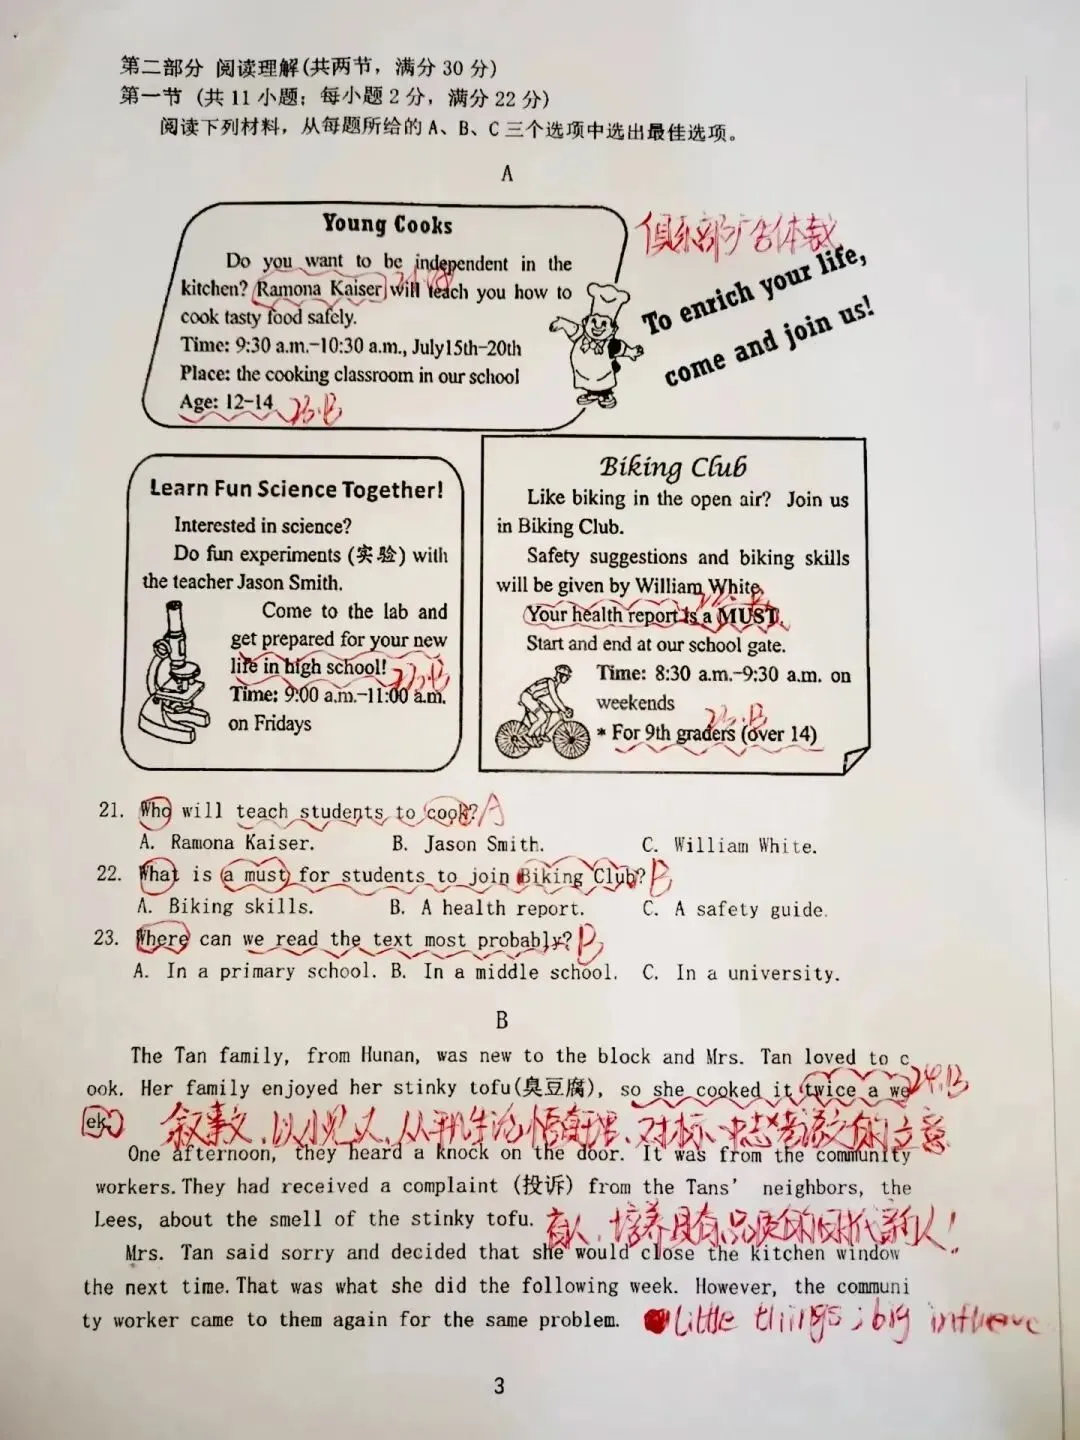 第二部分 阅读理解(共两节，满分 30 分)
第一节 (共 11 小题；每小题 2 分，满分 22 分)
阅读下列材料，从每题所给的 A、B、C 三个选项中选出最佳选项。
A
Young Cooks
Do you want to be independent in the
kitchen? Ramona Kaiser will teach you how to
cook tasty food safely.
Time: 9:30 a.m.-10:30 a.m., July15th-20th
Place: the cooking classroom in our school
Age: 12-14 23.B
俱乐部广告体裁
To enrich your life,
come and join us!
Learn Fun Science Together!
Interested in science?
Do fun experiments (实验) with
the teacher Jason Smith.
Come to the lab and
get prepared for your new
life in high school! 23.B
Time: 9:00 a.m.-11:00 a.m.
on Fridays
Biking Club
Like biking in the open air? Join us
in Biking Club.
Safety suggestions and biking skills
will be given by William White.
Your health report is a MUST.
Start and end at our school gate.
Time: 8:30 a.m.-9:30 a.m. on
weekends
23.B
* For 9th graders (over 14)
21. Who will teach students to cook? A
A. Ramona Kaiser. B. Jason Smith. C. William White.
22. What is a must for students to join Biking Club? B
A. Biking skills. B. A health report. C. A safety guide.
23. Where can we read the text most probably? B
A. In a primary school. B. In a middle school. C. In a university.
B
The Tan family, from Hunan, was new to the block and Mrs. Tan loved to c
ook. Her family enjoyed her stinky tofu(臭豆腐), so she cooked it twice a we 24.B
ek. 叙事文、以小见义、从平凡生活悟真理、对标中志考课文的立意
One afternoon, they heard a knock on the door. It was from the community
workers. They had received a complaint (投诉) from the Tans' neighbors, the
Lees, about the smell of the stinky tofu. 育人、培养具有品质的时代新人！
Mrs. Tan said sorry and decided that she would close the kitchen window
the next time. That was what she did the following week. However, the communi
ty worker came to them again for the same problem. little things; big influence
3